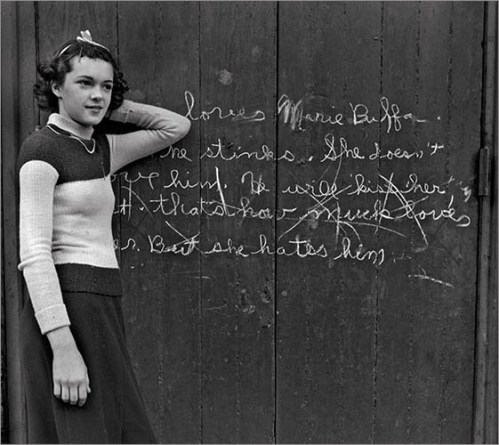 loves Marie Buffa.
he stinks. She doesn't
ove him. He will kiss her
that's how much loves
er. But she hates him.